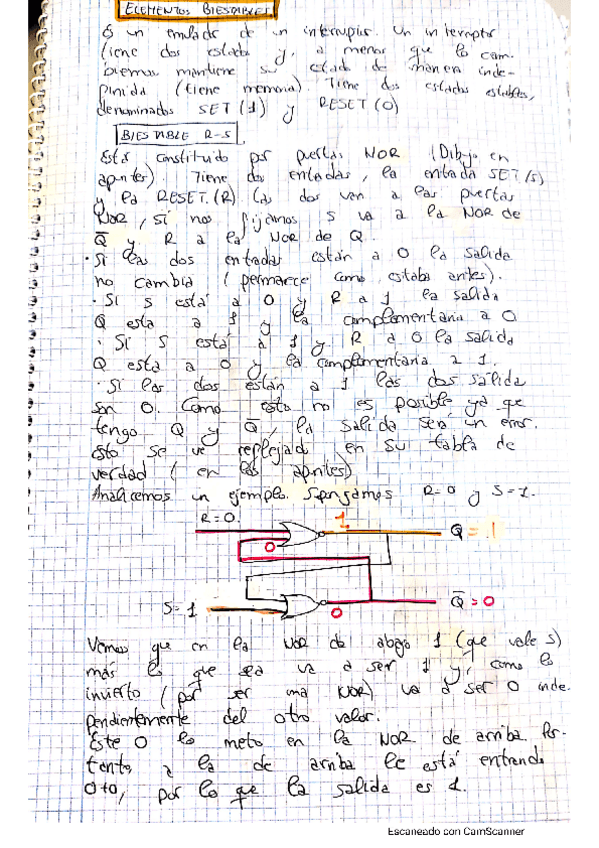 ELEMENTOS BIESTABLES
Es un emulador de un interruptor. Un interruptor
tiene dos estados y, a menos que lo cam-
biemos mantiene su estado de manera inde-
finida (tiene memoria). Tiene dos estados estables,
denominados SET (1) y RESET (0)
BIESTABLE R-S
Está constituido por puertas NOR (Dibujo en
apuntes). Tiene dos entradas, la entrada SET (S)
y la RESET (R). Las dos van a las puertas
NOR, si nos fijamos S va a la NOR de
Q̅ y R a la NOR de Q.
· Si las dos entradas están a 0 la salida
no cambia (permanece como estaba antes).
· Si S está a 0 y R a 1 la salida
Q esta a 1 y la complementaria a 0
· Si S está a 1 y R a 0 la salida
Q esta a 0 y la complementaria a 1.
· Si las dos están a 1 las dos salida
son 0. Como esto no es posible ya que
tengo Q y Q̅, la salida será un error.
Esto se ve reflejado en su tabla de
verdad (en los apuntes)
Analicemos un ejemplo. Supongamos R=0 y S=1.
R=0. 1. Q=1
0
S=1 0 Q̅=0
Vemos que en la NOR de abajo 1 (que vale S)
más lo que sea va a ser 1 y, como lo
invierto (por ser una NOR) va a ser 0 inde-
pendientemente del otro valor.
Este 0 lo meto en la NOR de arriba. Por
tanto, a la de arriba le está entrando
0+0, por lo que la salida es 1.
Escaneado con CamScanner